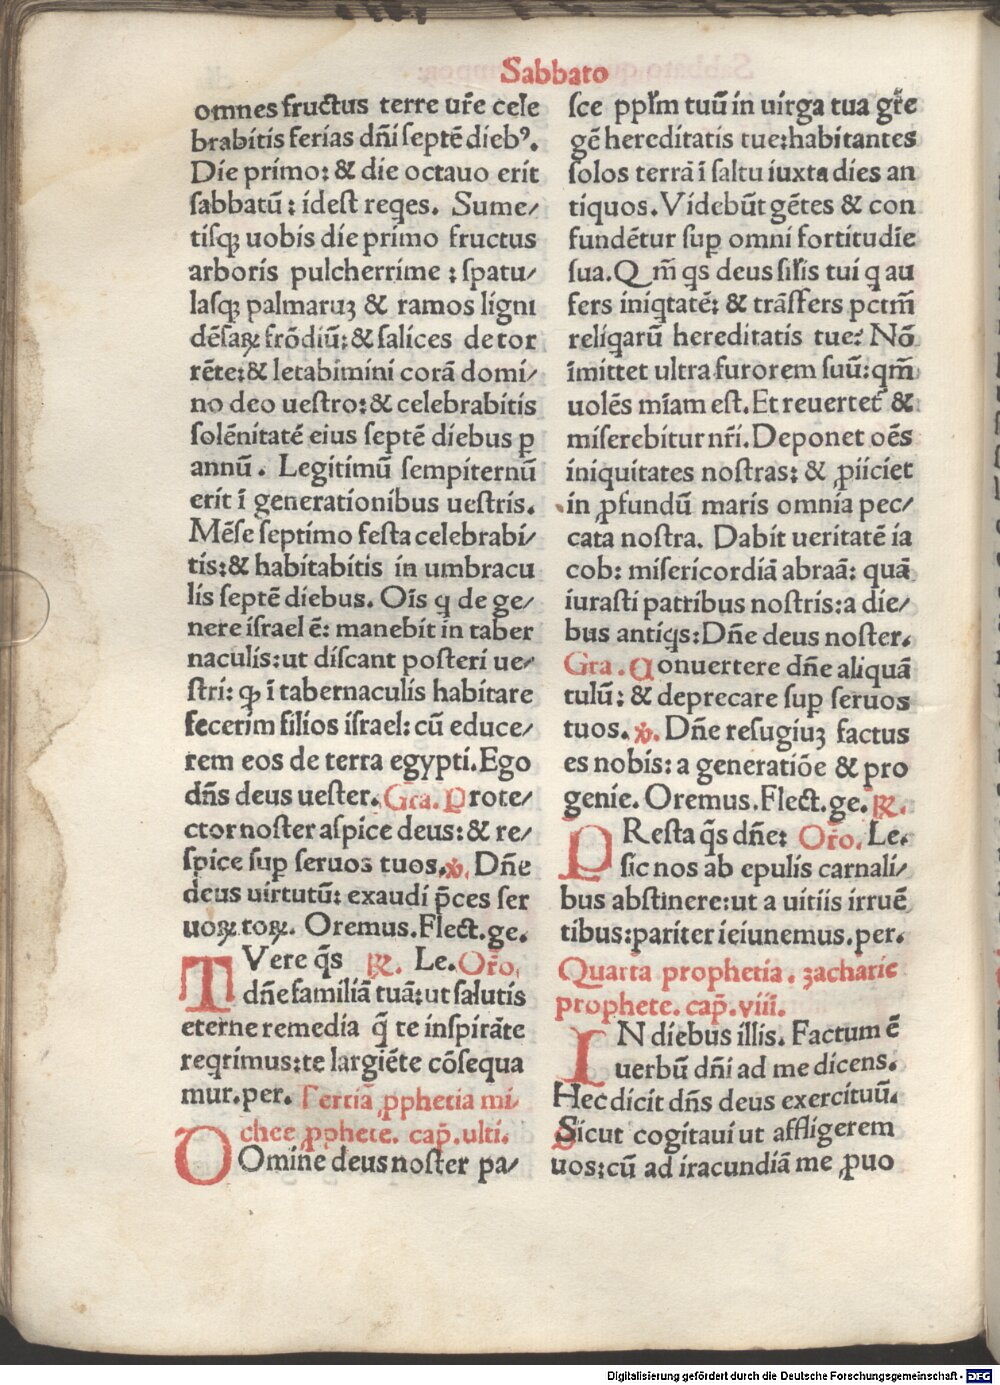 Sabbato
omnes fructus terre ur̃e cele
brabitis ferias dñi septē dieb⁹.
Die primo: & die octauo erit
sabbatū: idest reqes. Sume/
tisqꝫ uobis die primo fructus
arboris pulcherrime: spatu/
lasqꝫ palmaruꝫ & ramos ligni
dēsaꝝ frōdiū: & salices de tor
rēte: & letabimini corā domi/
no deo uestro: & celebrabitis
solēnitatē eius septē diebus ꝑ
annū. Legitimū sempiternū
erit ī generationibus uestris.
Mēse septimo festa celebrabi/
tis: & habitabitis in umbracu
lis septē diebus. Oīs q̇ de ge/
nere israel ē: manebit in taber
naculis: ut discant posteri ue/
stri: qꝫ ī tabernaculis habitare
fecerim filios israel: cū educe/
rem eos de terra egypti. Ego
dñs deus uester. Gra. Prote/
ctor noster aspice deus: & re/
spice suꝑ seruos tuos. ℣. Dñe
deus uirtutū: exaudi p̄ces ser
uoꝝ. toꝝ. Oremus. Flect. ge.
TVere q̄s ℞. Le. Or̃o.
dñe familiā tuā: ut salutis
eterne remedia q̄ te inspirāte
reqrimus: te largiēte cōsequa
mur. per. Tertiā ꝓphetia mi/
chee ꝓphete. cap̄. ulti.
DOmine deus noster pa/
sce ppl̃m tuū in uirga tua gr̃e
gē hereditatis tue: habitantes
solos terrā ī saltu iuxta dies an
tiquos. Videbūt gētes & con
fundētur suꝑ omni fortitudīe
sua. Qm̄ qs deus sil̃is tui q au
fers iniqtatē: & trāsfers pctm̄
reliqarū hereditatis tue? Nō
īmittet ultra furorem suū: qm̄
uolēs mīam est. Et reuertet᷑ &
miserebitur nr̃i. Deponet oēs
iniquitates nostras: & ꝓiiciet
in ꝓfundū maris omnia pec/
cata nostra. Dabit ueritatē ia
cob: misericordiā abraā: quā
iurasti patribus nostris: a die/
bus antiqs: Dñe deus noster.
Gra. Conuertere dñe aliquā
tulū: & deprecare suꝑ seruos
tuos. ℣. Dñe refugiuꝫ factus
es nobis: a generatiōe & pro
genie. Oremus. Flect. ge. ℞.
PResta q̄s dñe: Or̃o. Le.
sic nos ab epulis carnali/
bus abstinere: ut a uitiis irruē
tibus: pariter ieiunemus. per.
Quarta prophetia. zacharie
prophete. cap̄. viii.
IN diebus illis. Factum ē
uerbū dñi ad me dicens.
Hec dicit dñs deus exercituū.
Sicut cogitaui ut affligerem
uos: cū ad iracundiā me ꝓuo
Digitalisierung gefördert durch die Deutsche Forschungsgemeinschaft - DFG